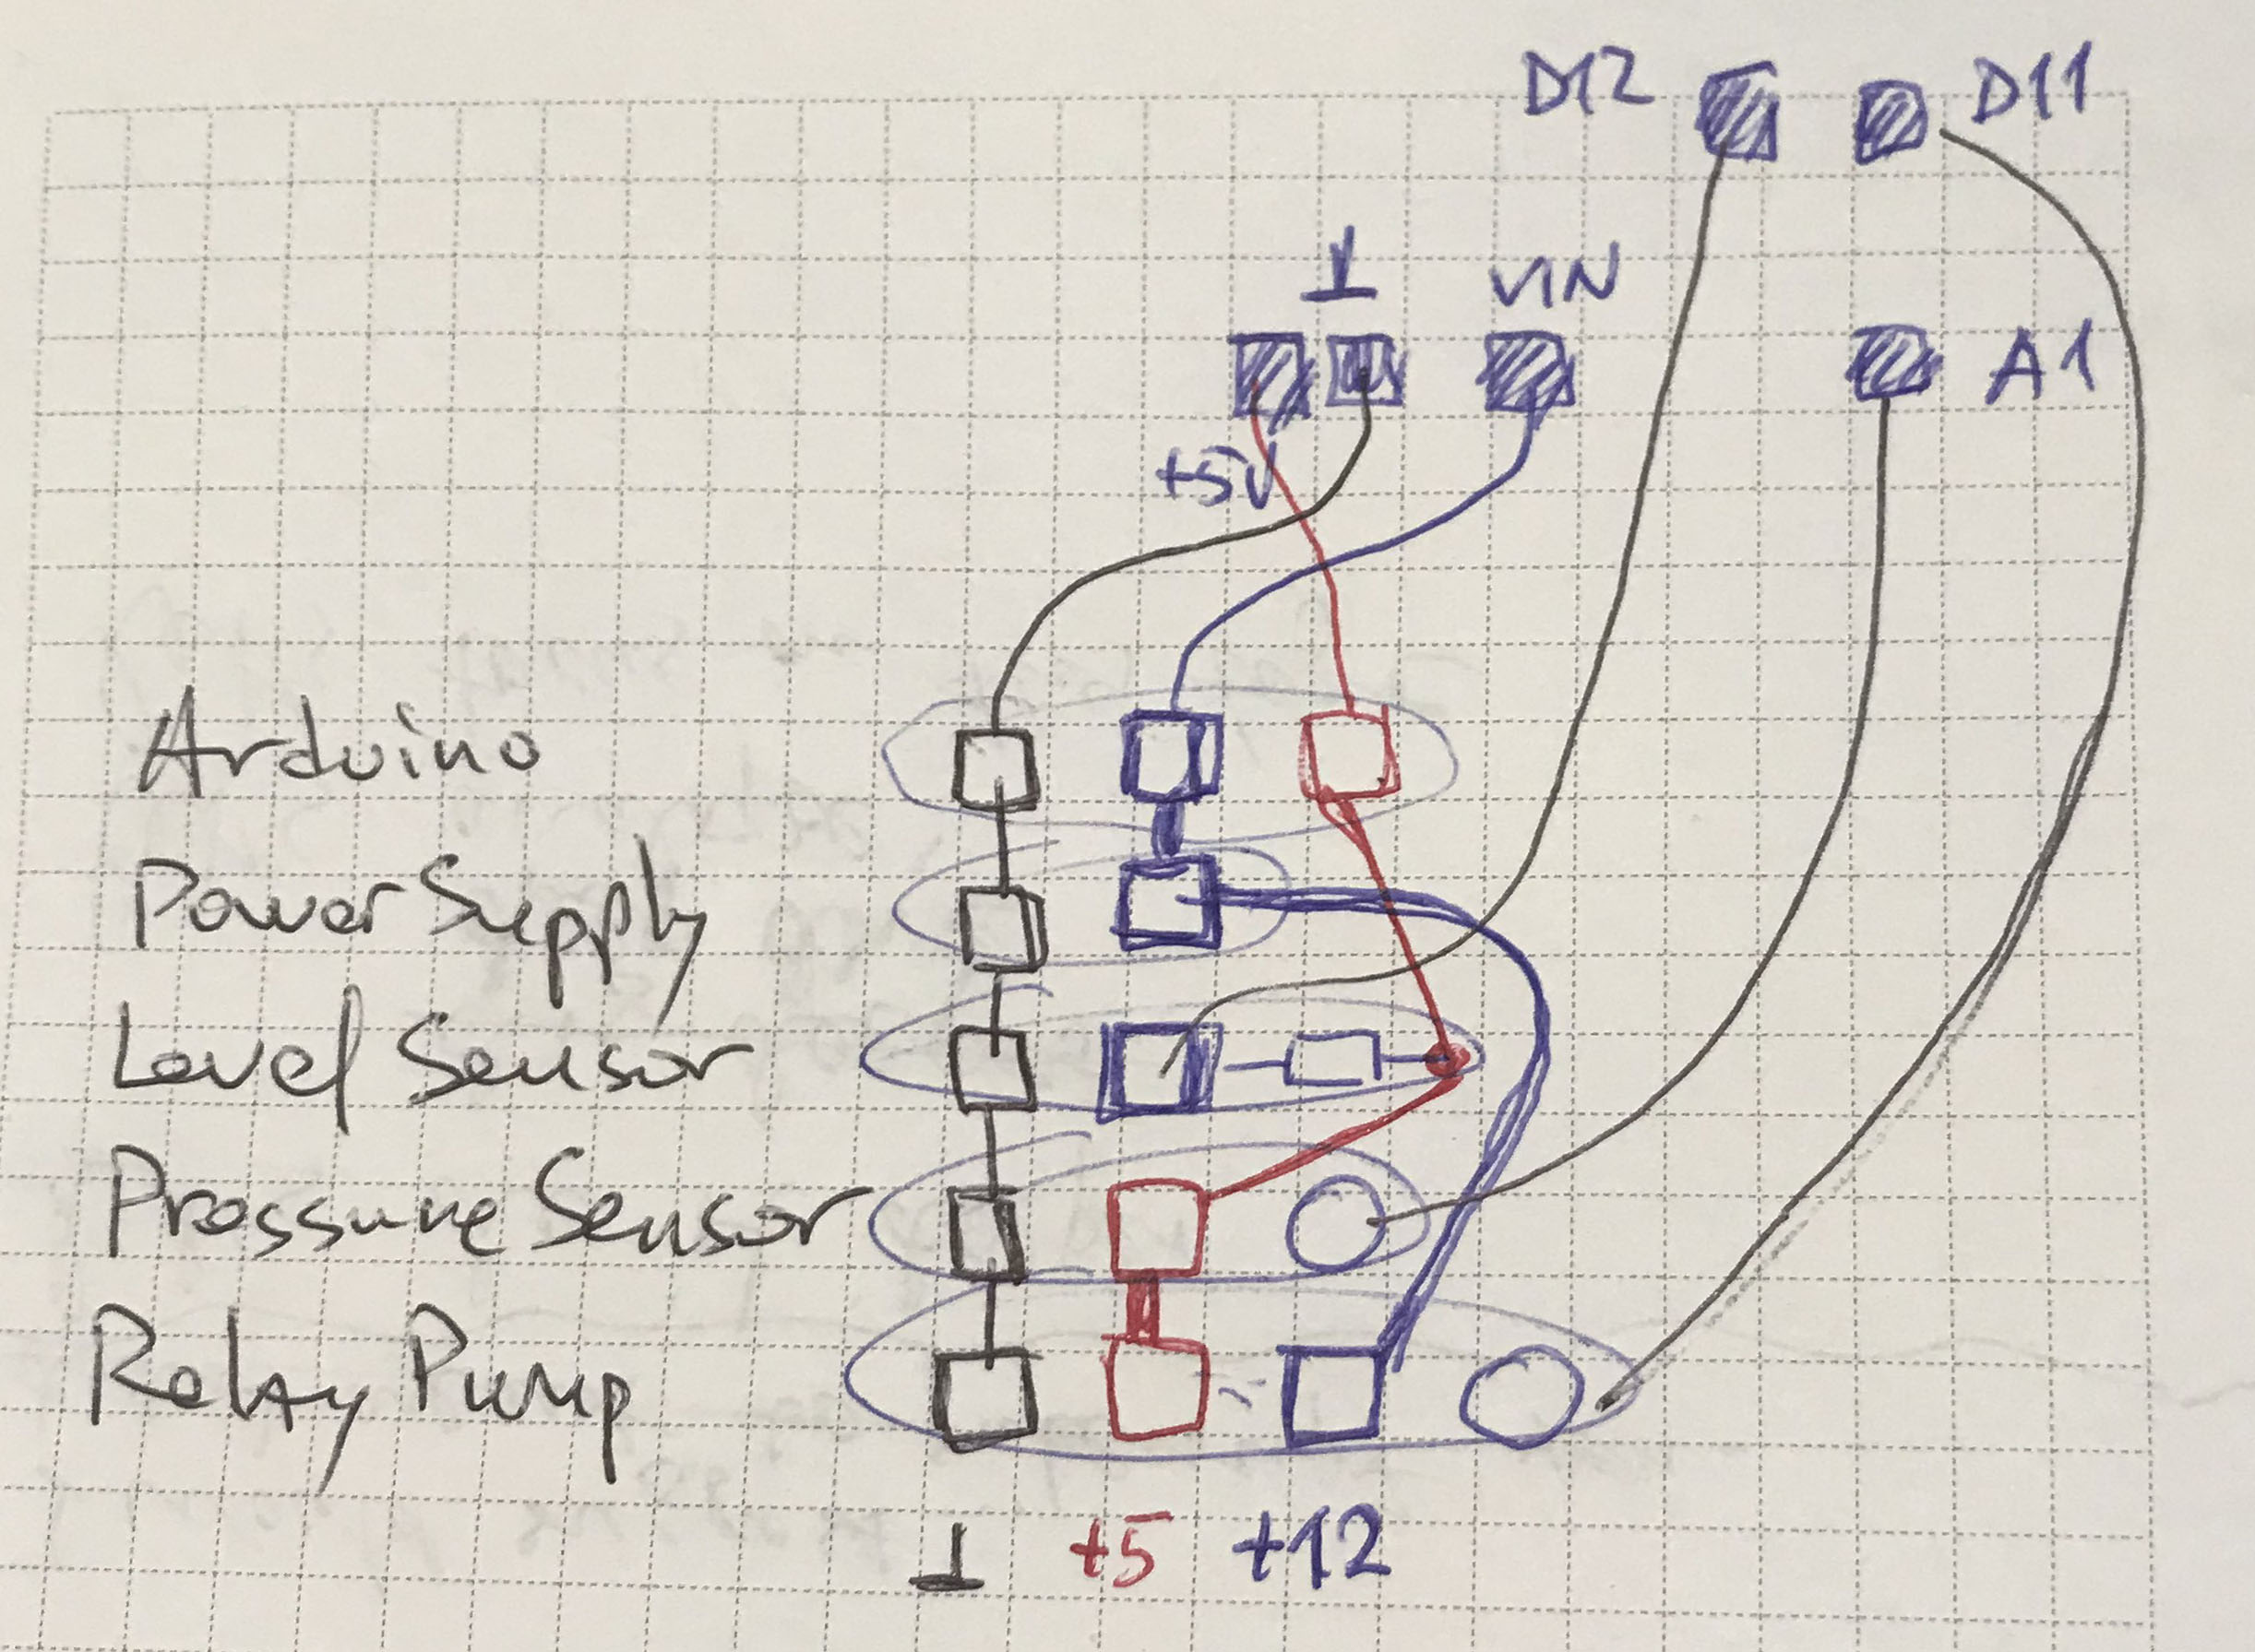 D12 D11
⊥ VIN
A1
+5V
Arduino
Power Supply
Level Sensor
Pressure Sensor
Relay Pump
⊥ +5 +12